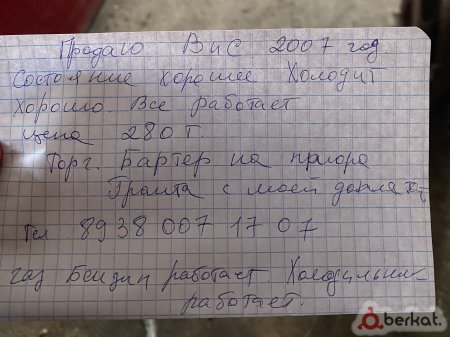 Продаю. ВиС 2007 год.
Состояние хорошее Холодит
Хорошо. Все работает
цена 280 т.
Торг. Бартер на приора
Гранта с моей доплат
Тел 8938 007 17 07
газ Бензин работает. Холодильник
работает.
berkat.